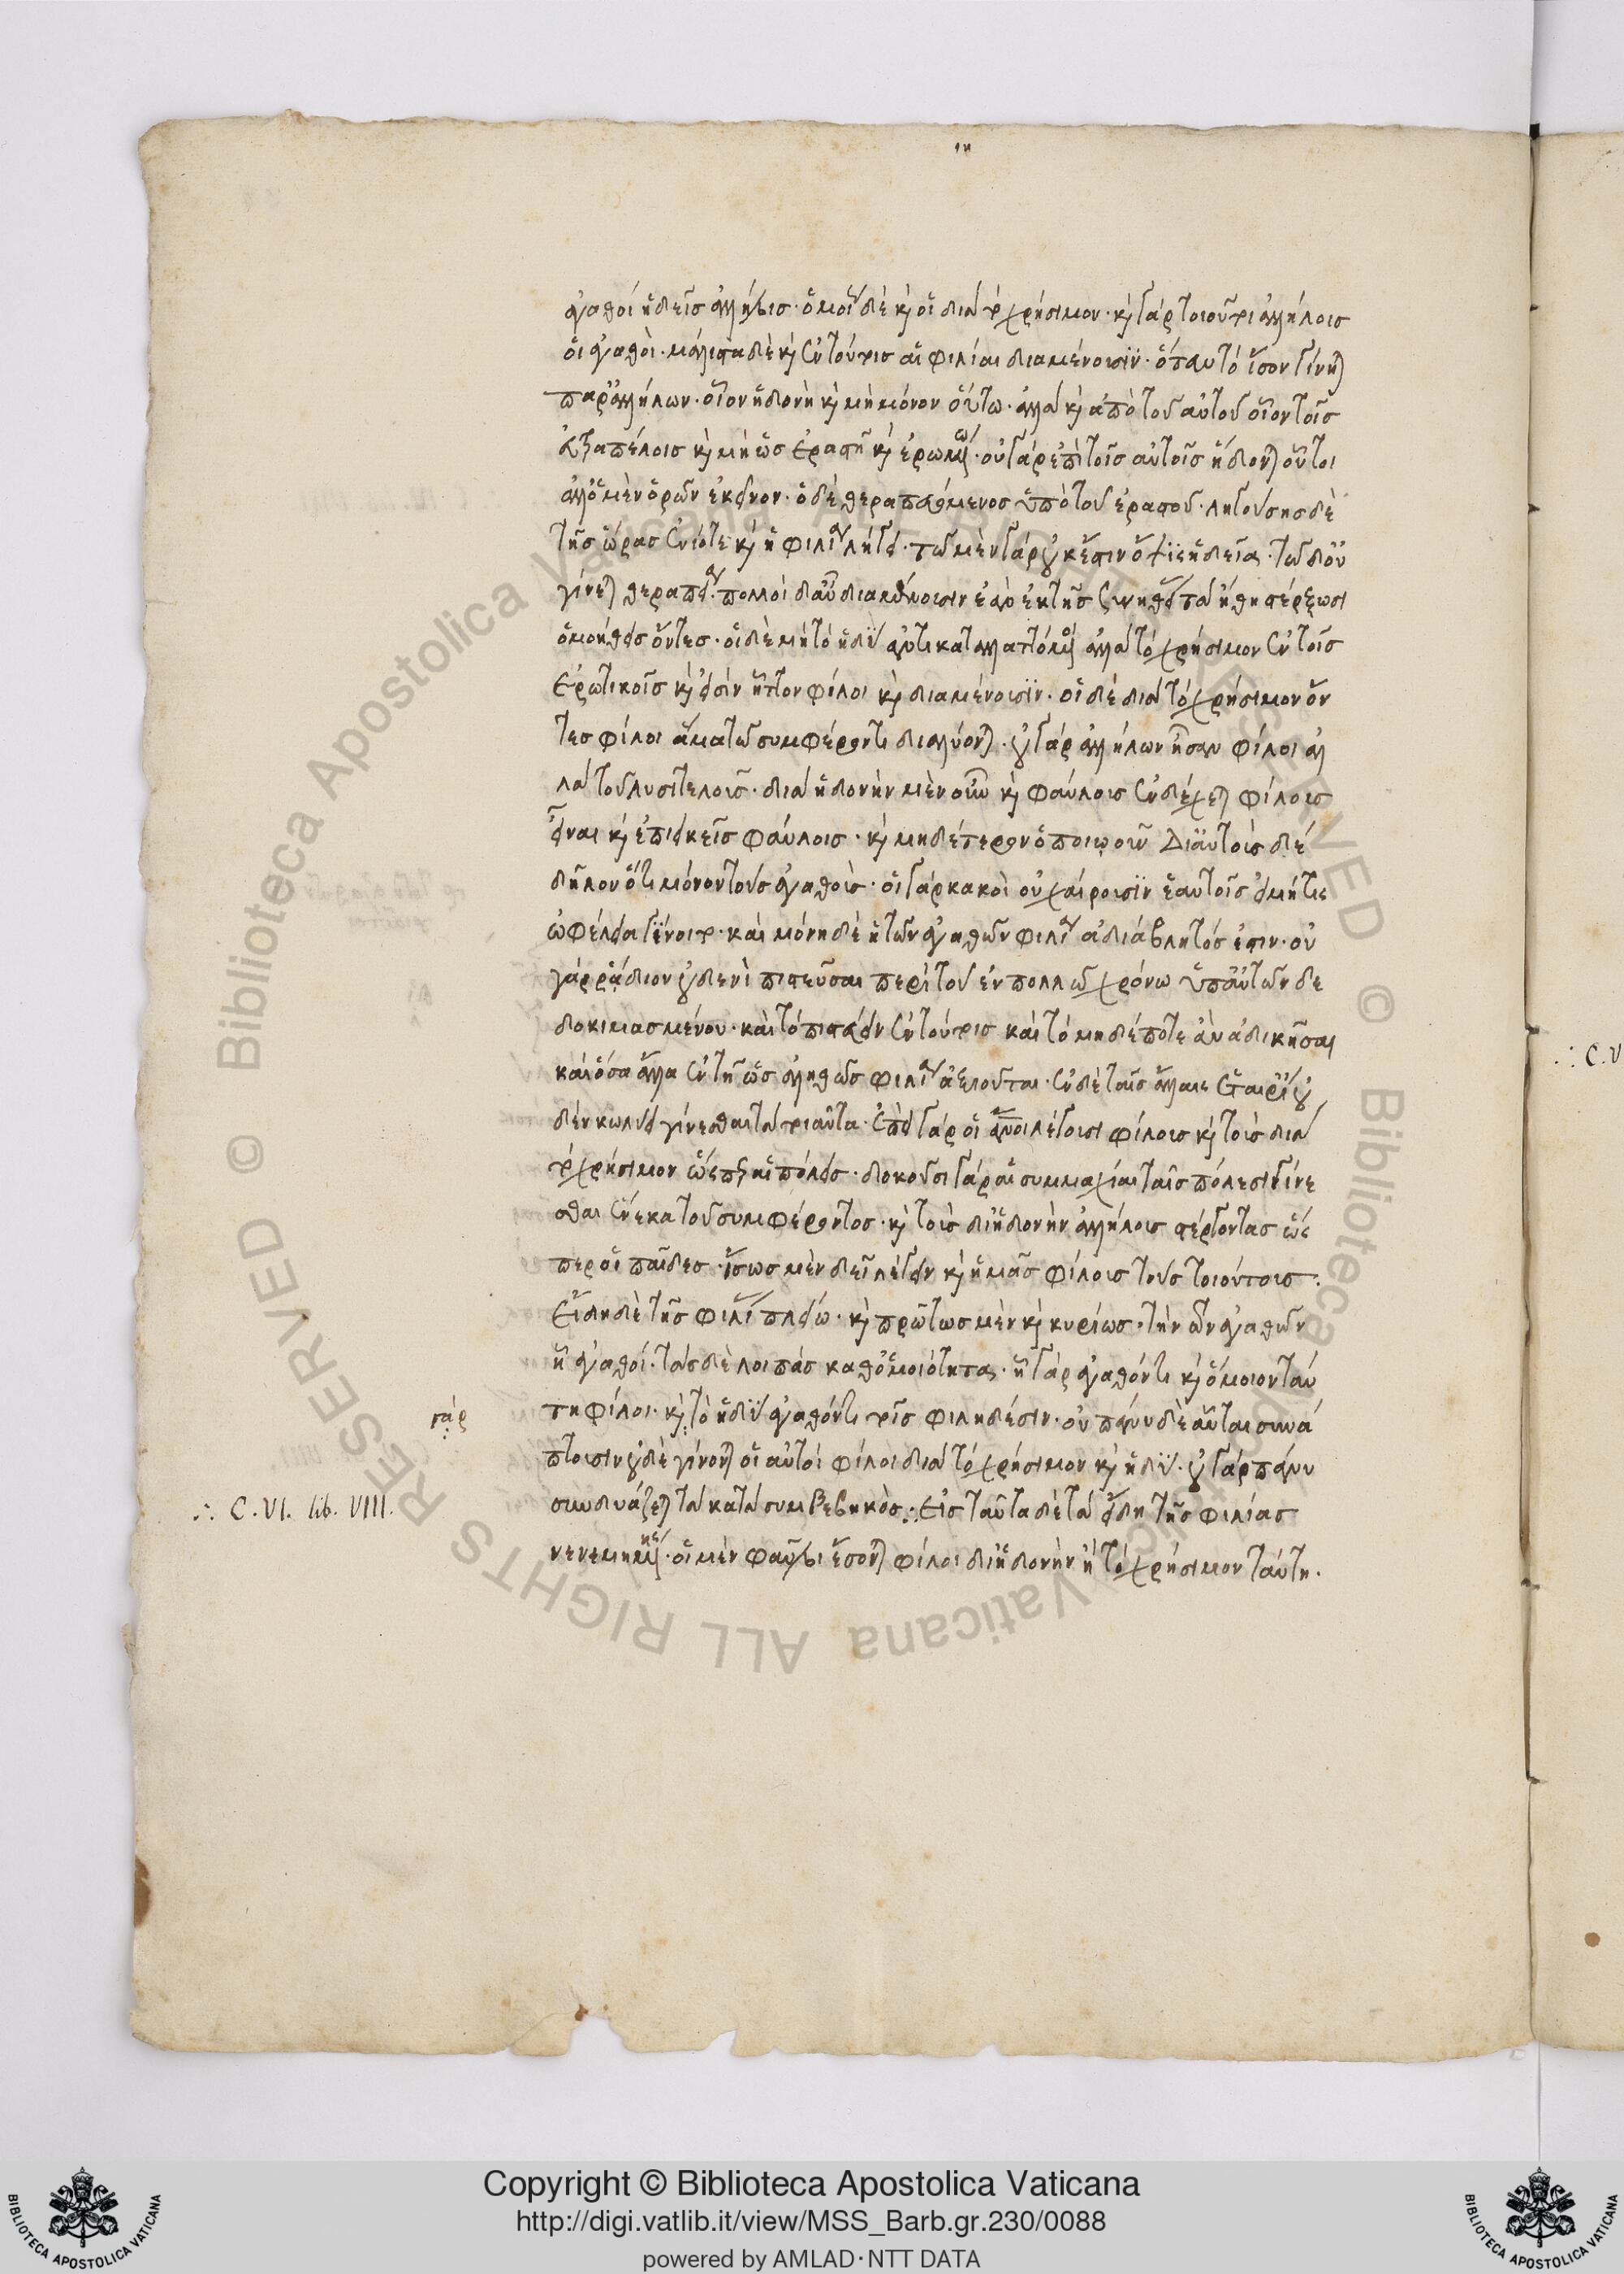 ιη
ἀγαθοὶ ἡδεῖς ἀλλήλοις· ὁμοίως δὲ καὶ οἱ διὰ τὸ χρήσιμον· καὶ γὰρ τοιοῦτοι ἀλλήλοις
οἱ ἀγαθοί· μάλιστα δὲ καὶ ἐν τούτοις αἱ φιλίαι διαμένουσιν· ὅταν τὸ ἴσον γίνηται
παρ' ἀλλήλων· οἷον ἡδονὴ καὶ μὴ μόνον οὕτω· ἀλλὰ καὶ ἀπὸ τοῦ αὐτοῦ οἷον τοῖς
εὐτραπέλοις καὶ μὴ ὡς ἐραστῇ καὶ ἐρωμένῳ· οὐ γὰρ ἐπὶ τοῖς αὐτοῖς ἥδονται οὗτοι
ἀλλ' ὁ μὲν ὁρῶν ἐκεῖνον· ὁ δὲ θεραπευόμενος ὑπὸ τοῦ ἐραστοῦ· ληγούσης δὲ
τῆς ὥρας ἐνίοτε καὶ ἡ φιλία λήγει· τῷ μὲν γὰρ οὐκ ἔστιν ὄψις ἡδεῖα· τῷ δ' οὐ
γίνεται θεραπεία· πολλοὶ δ' αὖ διαμένουσιν ἐὰν ἐκ τῆς συνηθείας τὰ ἤθη στέρξωσι
ὁμοήθεις ὄντες· οἱ δὲ μὴ τὸ ἡδὺ ἀντικαταλλαττόμενοι ἀλλὰ τὸ χρήσιμον ἐν τοῖς
ἐρωτικοῖς καὶ εἰσὶν ἧττον φίλοι καὶ διαμένουσιν· οἱ δὲ διὰ τὸ χρήσιμον ὄν
τες φίλοι ἅμα τῷ συμφέροντι διαλύονται· οὐ γὰρ ἀλλήλων ἦσαν φίλοι ἀλ
λὰ τοῦ λυσιτελοῦς· διὰ ἡδονὴν μὲν οὖν καὶ φαύλους ἐνδέχεται φίλους
εἶναι καὶ ἐπιεικεῖς φαύλοις· καὶ μηδέτερον ὁποιῳοῦν Δι' αὑτοὺς δὲ
δῆλον ὅτι μόνον τοὺς ἀγαθούς· οἱ γὰρ κακοὶ οὐ χαίρουσιν ἑαυτοῖς εἰ μή τις
ὠφέλεια γίνοιτο· καὶ μόνη δὲ ἡ τῶν ἀγαθῶν φιλία ἀδιάβλητός ἐστιν· οὐ
γὰρ ῥᾴδιον οὐδενὶ πιστεῦσαι περὶ τοῦ ἐν πολλῷ χρόνῳ ὑπ' αὐτῶν δε
δοκιμασμένου· καὶ τὸ πιστεύειν ἐν τούτοις καὶ τὸ μηδέποτε ἂν ἀδικῆσαι
καὶ ὅσα ἄλλα ἐν τῇ ὡς ἀληθῶς φιλίᾳ ἀξιοῦται· ἐν δὲ ταῖς ἄλλαις ἑταιρείαις οὐ
δὲν κωλύει γίνεσθαι τὰ τοιαῦτα· ἐπεὶ γὰρ οἱ ἄνθρωποι λέγουσι φίλους καὶ τοὺς διὰ
τὸ χρήσιμον ὥσπερ αἱ πόλεις· δοκοῦσι γὰρ αἱ συμμαχίαι ταῖς πόλεσι γίνε
σθαι ἕνεκα τοῦ συμφέροντος· καὶ τοὺς δι' ἡδονὴν ἀλλήλους στέργοντας ὥσ
περ οἱ παῖδες· ἴσως μὲν δεῖ λέγειν καὶ ἡμᾶς φίλους τοὺς τοιούτους.
Εἴδη δὲ τῆς φιλίας πλείω· καὶ πρώτως μὲν καὶ κυρίως· τὴν τῶν ἀγαθῶν
ᾗ ἀγαθοί· τὰς δὲ λοιπὰς καθ' ὁμοιότητας· ᾗ γὰρ ἀγαθόν τι καὶ ὅμοιον ταύ
τῃ φίλοι· καὶ τὸ ἡδὺ ἀγαθόν τι τοῖς φιληδέσιν· οὐ πάνυ δὲ αὗται συνά
γὰρ
πτουσιν οὐδὲ γίνονται οἱ αὐτοὶ φίλοι διὰ τὸ χρήσιμον καὶ ἡδύ· οὐ γὰρ πάνυ
συνδυάζεται τὰ κατὰ συμβεβηκός ∴ Εἰς ταῦτα δὲ τὰ εἴδη τῆς φιλίας
∴ C. VI. lib. VIII.
νενεμημένης· οἱ μὲν φαῦλοι ἔσονται φίλοι δι' ἡδονὴν ἢ τὸ χρήσιμον ταύτῃ.
∴ C. V
Copyright © Biblioteca Apostolica Vaticana
http://digi.vatlib.it/view/MSS_Barb.gr.230/0088
powered by AMLAD · NTT DATA
BIBLIOTECA APOSTOLICA VATICANA
BIBLIOTECA APOSTOLICA VATICANA
© Biblioteca Apostolica Vaticana ALL RIGHTS RESERVED
© Biblioteca Apostolica Vaticana ALL RIGHTS RESERVED